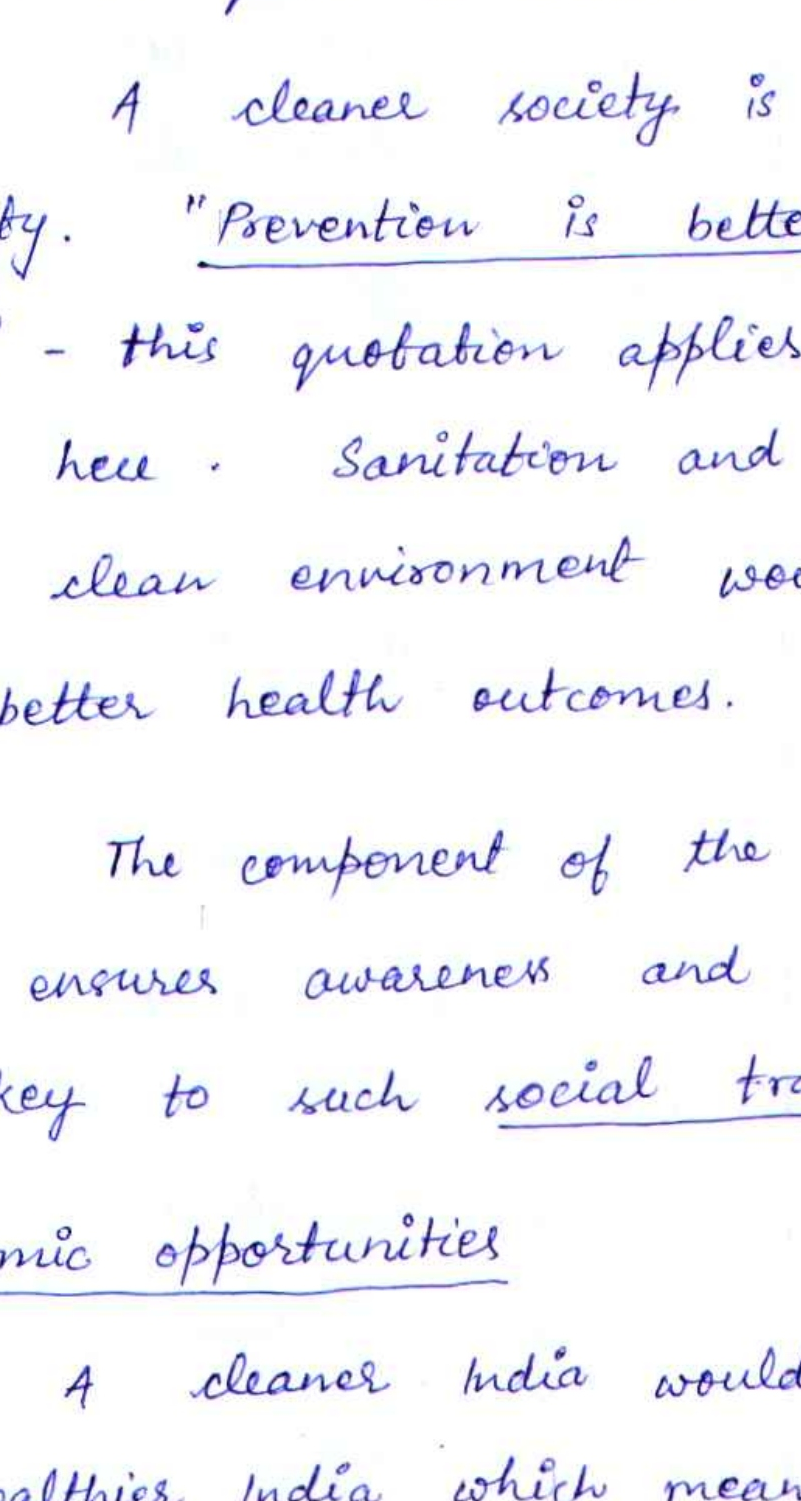 A cleaner society is
ty. "Prevention is bette
- this quotation applies
here . Sanitation and
clean environment wou
better health outcomes.
The component of the
ensures awareness and
key to such social tra
mic opportunities
A cleaner India would
althier India which mean